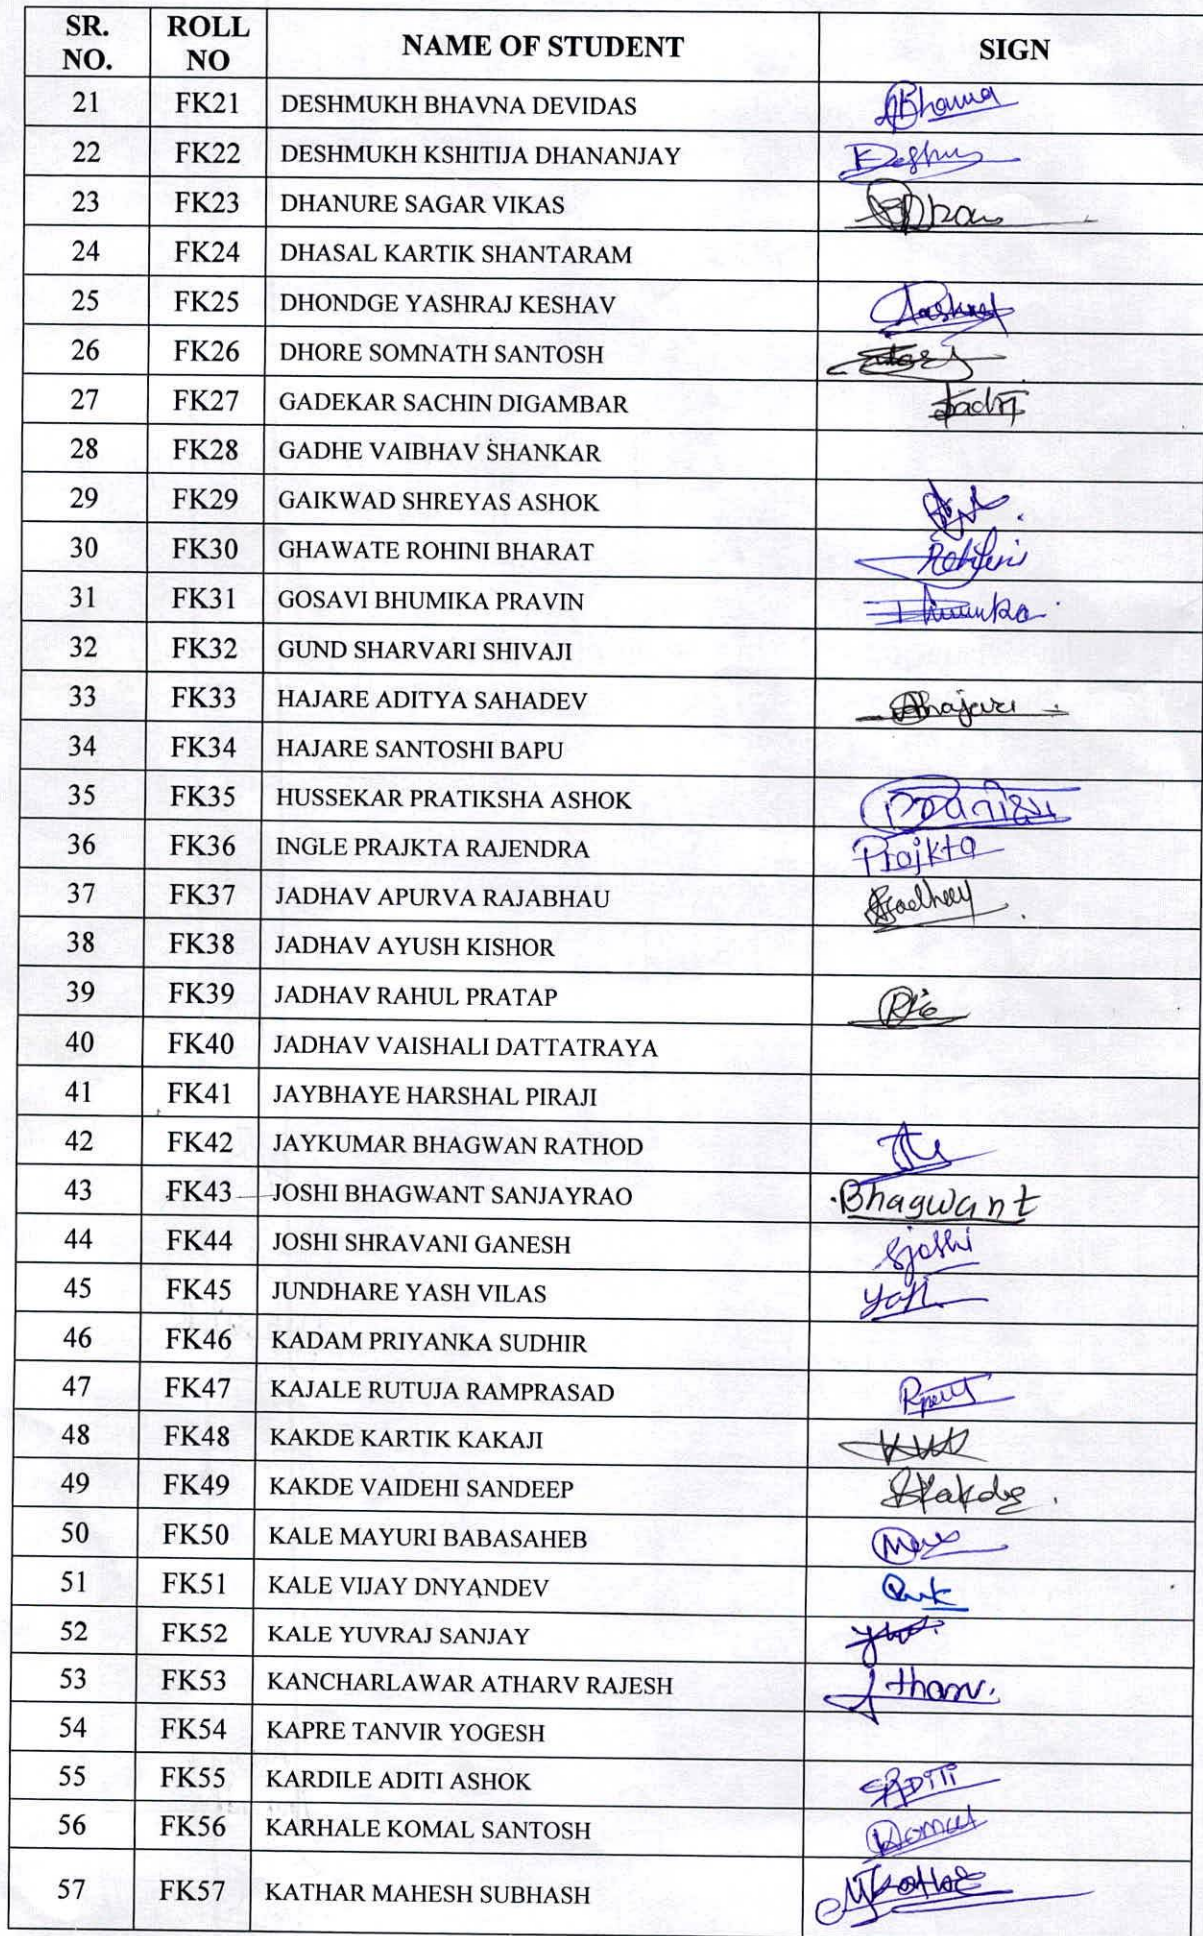 SR. NO. ROLL NO NAME OF STUDENT SIGN
21 FK21 DESHMUKH BHAVNA DEVIDAS Bhavna
22 FK22 DESHMUKH KSHITIJA DHANANJAY
23 FK23 DHANURE SAGAR VIKAS
24 FK24 DHASAL KARTIK SHANTARAM
25 FK25 DHONDGE YASHRAJ KESHAV
26 FK26 DHORE SOMNATH SANTOSH
27 FK27 GADEKAR SACHIN DIGAMBAR
28 FK28 GADHE VAIBHAV SHANKAR
29 FK29 GAIKWAD SHREYAS ASHOK
30 FK30 GHAWATE ROHINI BHARAT Rohini
31 FK31 GOSAVI BHUMIKA PRAVIN
32 FK32 GUND SHARVARI SHIVAJI
33 FK33 HAJARE ADITYA SAHADEV
34 FK34 HAJARE SANTOSHI BAPU
35 FK35 HUSSEKAR PRATIKSHA ASHOK
36 FK36 INGLE PRAJKTA RAJENDRA Prajkta
37 FK37 JADHAV APURVA RAJABHAU
38 FK38 JADHAV AYUSH KISHOR
39 FK39 JADHAV RAHUL PRATAP
40 FK40 JADHAV VAISHALI DATTATRAYA
41 FK41 JAYBHAYE HARSHAL PIRAJI
42 FK42 JAYKUMAR BHAGWAN RATHOD
43 FK43 JOSHI BHAGWANT SANJAYRAO Bhagwant
44 FK44 JOSHI SHRAVANI GANESH Sjoshi
45 FK45 JUNDHARE YASH VILAS
46 FK46 KADAM PRIYANKA SUDHIR
47 FK47 KAJALE RUTUJA RAMPRASAD
48 FK48 KAKDE KARTIK KAKAJI
49 FK49 KAKDE VAIDEHI SANDEEP
50 FK50 KALE MAYURI BABASAHEB
51 FK51 KALE VIJAY DNYANDEV
52 FK52 KALE YUVRAJ SANJAY
53 FK53 KANCHARLAWAR ATHARV RAJESH
54 FK54 KAPRE TANVIR YOGESH
55 FK55 KARDILE ADITI ASHOK ADITI
56 FK56 KARHALE KOMAL SANTOSH Komal
57 FK57 KATHAR MAHESH SUBHASH